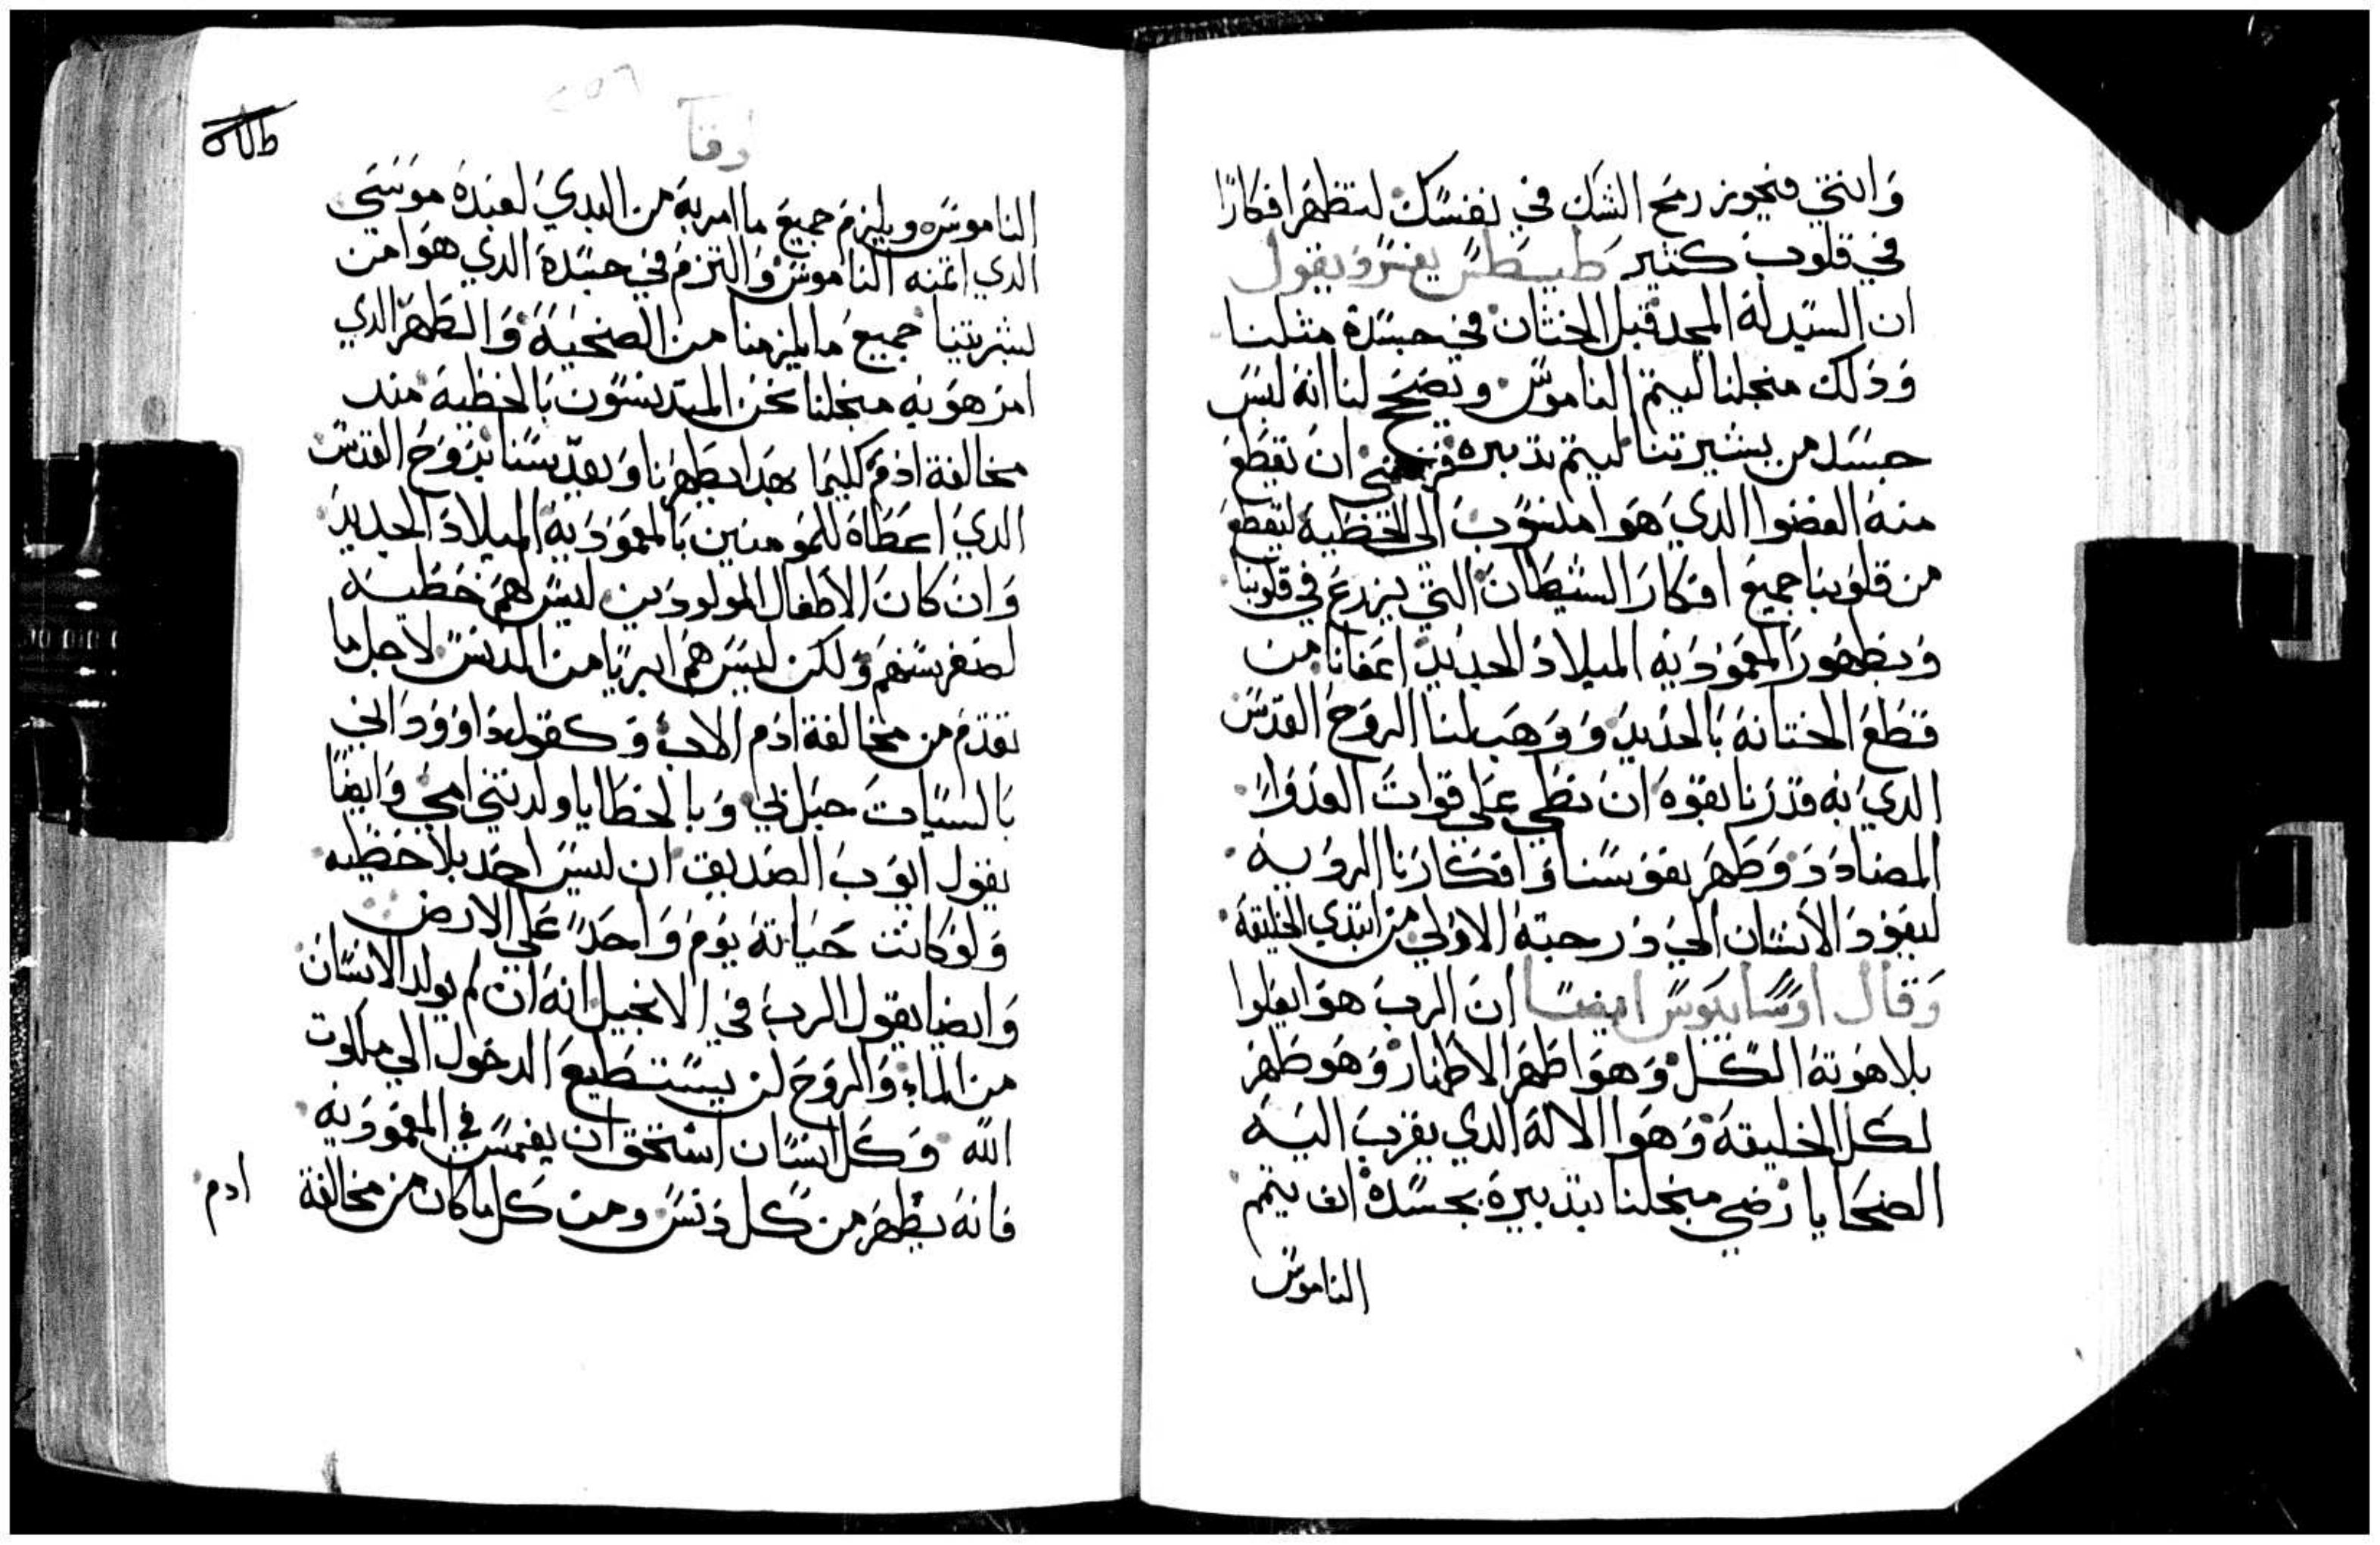 وانتي فيجوز رمح الشك في نفسك لتظهر افكارًا
في قلوب كتير طيطس يفسر ويقول
ان السيد له المجد قبل الختان في جسده متلنا
وذلك منجلنا ليتم الناموس وتصحح لنا انه لبس
جسد من بشيرتنا ليتم تدبيره ان تقطع
منه العضوا الدي هوا منسوب الى الخطية ليقطع
من قلوبنا جميع افكار الشيطان التي يزرع في قلوبنا
وبطهور المعمودية الميلاد الجديد اعفانا من
قطع الختانه بالحديد ووهب لنا الروح القدس
الدي به قدرنا بقوه ان نطي علي قوات العدوا
المضادد وطهر نفوسنا وافكارنا الردية
ليعود الانسان الي درجته الاولي من ابتدي الخليقة
وقال اوسابيوس ايضًا ان الرب هو ايعلوا
بلاهوته الكل وهوا طهر الاطهار وهو طهر
لكل الخليقة وهوا الاله الدي يقرب اليه
الضحايا رضي منجلنا بتدبيره بجسده ان يتمم
الناموس
لوقا
الناموس ويلزم جميع ما امر به من البدي لعبده موسي
الدي اتمنه الناموس والتزم في جسده الدي هوا من
بشريتنا جميع ما يلزمنا من الضحية والطهر الدي
امر هو به منجلنا نحن المتدنسون بالخطية مند
مخالفة ادم كليما بهدا يطهرنا ويقدسنا بروح القدس
الدي اعطاه للمومنين بالمعمودية الميلاد الجديد
وان كان الاطفال المولودين ليس لهم خطية
لصغر سنهم ولكن ليس هم ابريا من الدنس لاجل ما
تقدم من مخالفة ادم الاب وكقول داوود اني
بالسيات حبل بي وبالخطايا ولدتني امي وايضًا
يقول ايوب الصديق ان ليس احد بلا خطيه
ولو كانت حياته يوم واحد علي الارض
وايضا يقول الرب في الانجيل انه ان لم يولد الانسان
من الماء والروح لن يستطيع الدخول الي ملكوت
الله وكل انسان استحق ان يغمس في المعمودية
فانه يطهر من كل دنس ومن كل ما كان من مخالفة
ادم